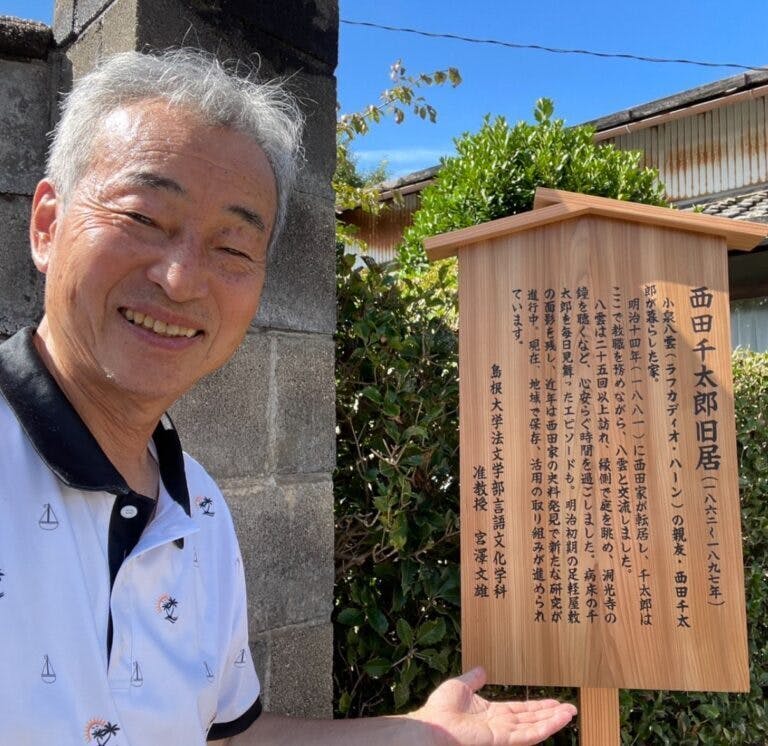 西田千太郎旧居(一八六二~一八九七年)
小泉八雲(ラフカディオ・ハーン)の親友・西田千太
郎が暮らした家。
明治十四年(一八八一)に西田家が転居し、千太郎は
ここで教職を務めながら、八雲と交流しました。
八雲は二十五回以上訪れ、縁側で庭を眺め、洞光寺の
鐘を聴くなど、心安らぐ時間を過ごしました。病床の千
太郎を毎日見舞ったエピソードも。明治初期の足軽屋敷
の面影を残し、近年は西田家の史料発見で新たな研究が
進行中。現在、地域で保存、活用の取り組みが進められ
ています。
島根大学法文学部言語文化学科
准教授 宮澤文雄